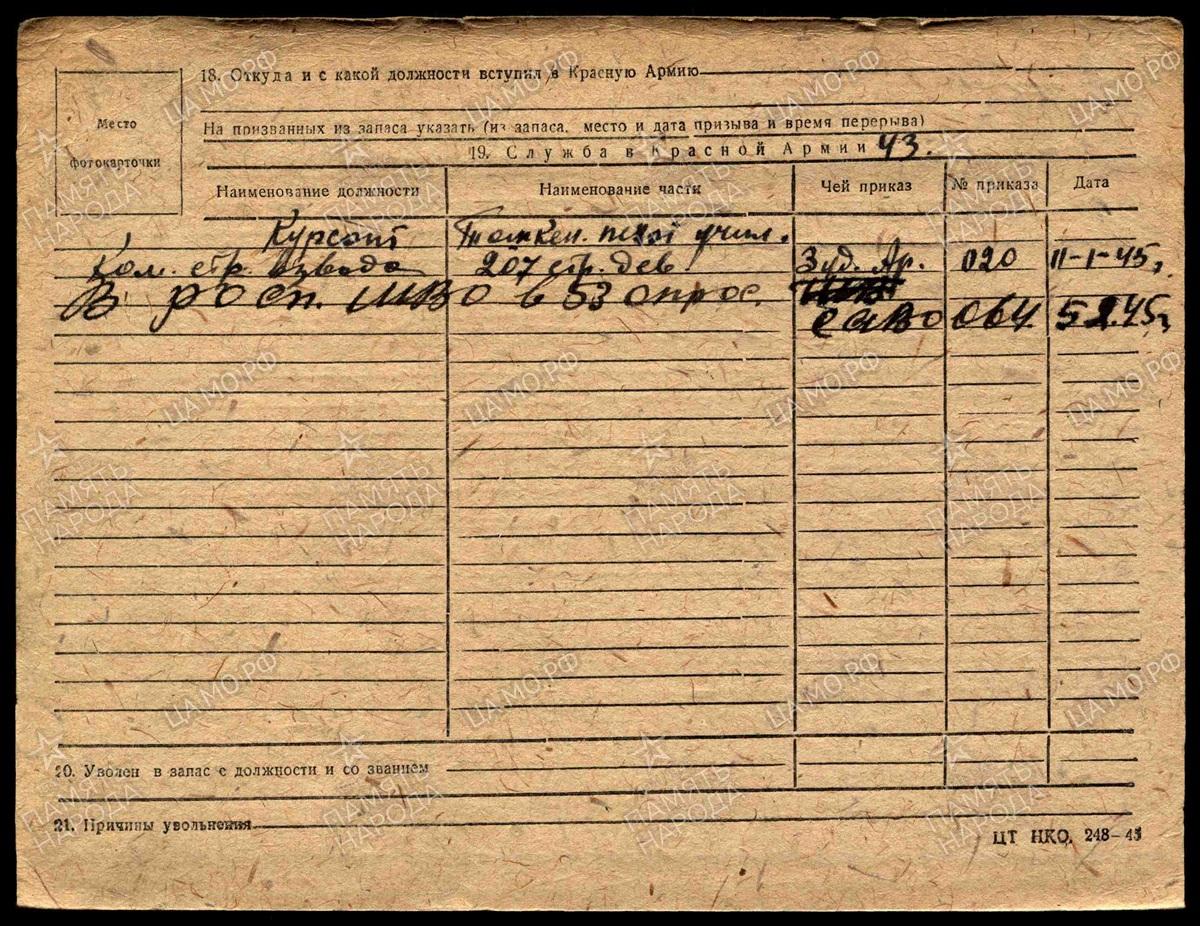 18. Откуда и с какой должности вступил в Красную Армию
Место
фотокарточки
На призванных из запаса указать (из запаса, место и дата призыва и время перерыва)
19. Служба в Красной Армии 43.
Наименование должности Наименование части Чей приказ № приказа Дата
Курсант Ташкен. пехот учил.
Ком. стр. взвода 207 стр. див. 3 уд. Ар. 020 11-1-45г.
В росп. МВО в 53 опрос.
САВО 064. 5 2.45г.
20. Уволен в запас с должности и со званием
21. Причины увольнения
ЦТ НКО. 248—45
ЦАМО.РФ
ПАМЯТЬ НАРОДА